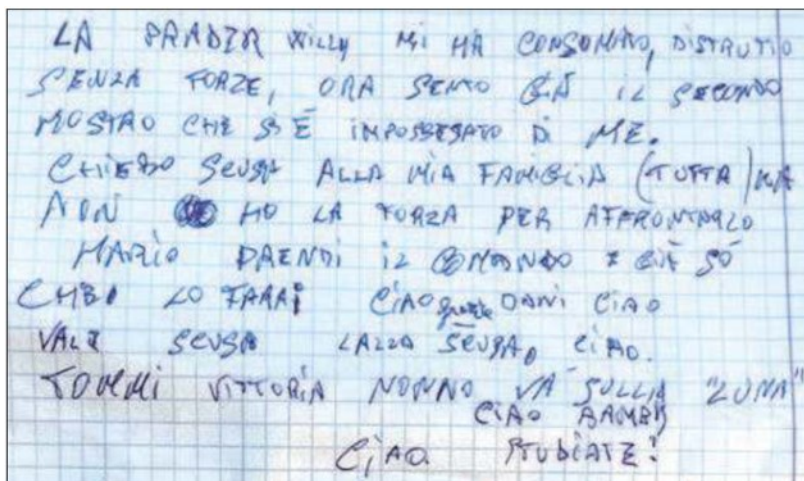 LA PRADER WILLY MI HA CONSUMATO, DISTRUTTO
SENZA FORZE, ORA SENTO GIÀ IL SECONDO
MOSTRO CHE SI È IMPOSSESATO DI ME.
CHIEDO SCUSA ALLA MIA FAMIGLIA (TUTTA) MA
NON HO LA FORZA PER AFFRONTARLO
MARIO PRENDI IL COMANDO E GIÀ SÒ
CHE LO FARAI CIAO grazie DANI CIAO
VALE SCUSA LALLA SCUSA, CIAO.
TOMMI VITTORIA NONNO VÀ SULLA "LUNA"
CIAO BAMBI
CIAO STUDIATE!